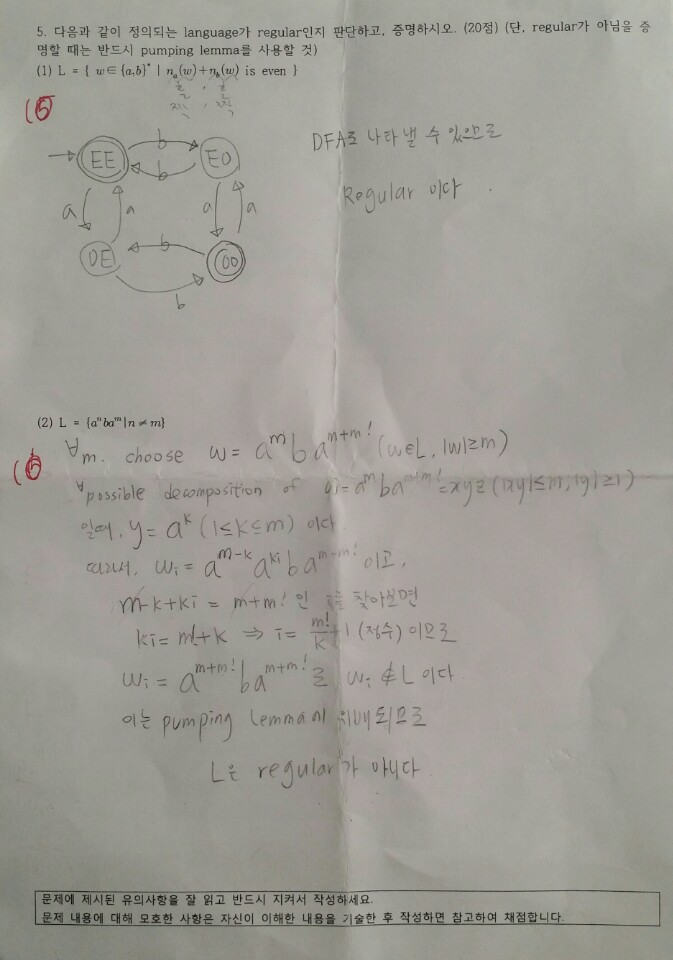 5. 다음과 같이 정의되는 language가 regular인지 판단하고, 증명하시오. (20점) (단, regular가 아님을 증
명할 때는 반드시 pumping lemma를 사용할 것)
(1) L = { w∈{a,b}* | nₐ(w)+n_b(w) is even }
홀, 홀
짝, 짝
(5
b
EE EO
b
a a a a
b
OE OO
b
DFA로 나타낼 수 있으므로
Regular 이다.
(2) L = {aⁿbaᵐ | n ≠ m}
(5
∀m. choose w = a^m b a^{m+m!} (w∈L, |w|≥m)
∀possible decomposition of w=a^m b a^{m+m!}=xyz (|xy|≤m, |y|≥1)
일때, y = a^k (1≤k≤m) 이다.
따라서, w_i = a^{m-k} a^{ki} b a^{m+m!} 이고,
m-k+ki = m+m! 인 i를 찾아보면
ki = m!+k ⇒ i = m!/k + 1 (정수) 이므로
w_i = a^{m+m!} b a^{m+m!} 로 w_i ∉ L 이다
이는 pumping lemma에 위배되므로
L은 regular가 아니다.
문제에 제시된 유의사항을 잘 읽고 반드시 지켜서 작성하세요.
문제 내용에 대해 모호한 사항은 자신이 이해한 내용을 기술한 후 작성하면 참고하여 채점합니다.